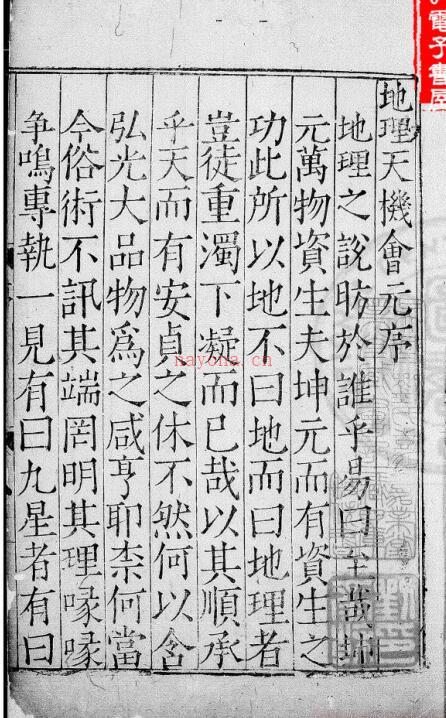 地理天機會元序
地理之說昉於誰乎易曰至哉坤
元萬物資生夫坤元而有資生之
功此所以地不曰地而曰地理者
豈徒重濁下凝而已哉以其順承
乎天而有安貞之休不然何以含
弘光大品物爲之咸亨耶柰何當
今俗術不訊其端罔明其理喙喙
争鳴專執一見有曰九星者有曰
電子書屋
nayona.cn